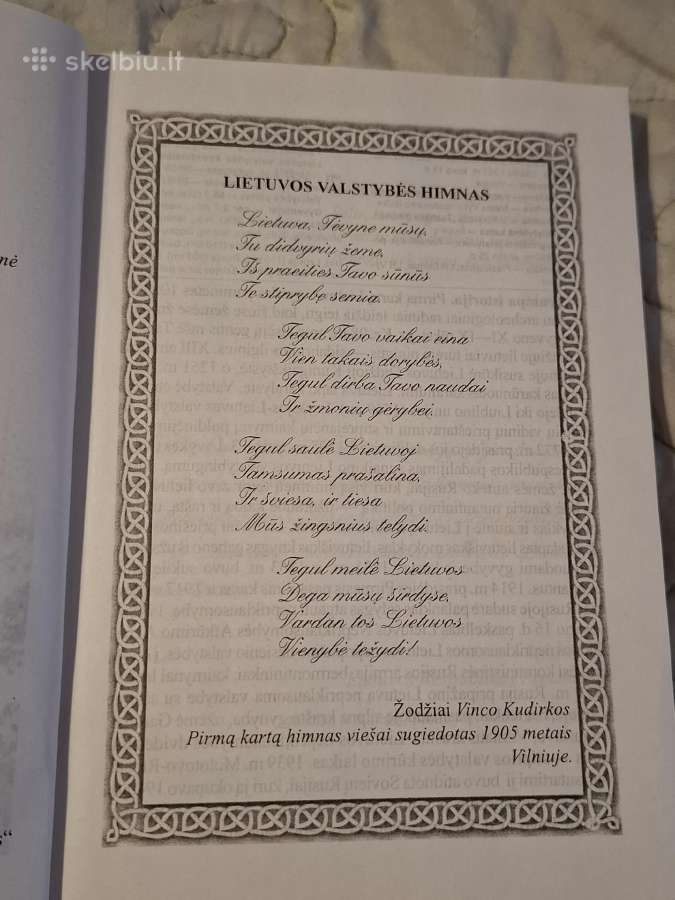 skelbiu.lt
nė
LIETUVOS VALSTYBĖS HIMNAS
Lietuva, Tėvyne mūsų,
Tu didvyrių žeme,
Iš praeities Tavo sūnūs
Te stiprybę semia.
Tegul Tavo vaikai eina
Vien takais dorybės,
Tegul dirba Tavo naudai
Ir žmonių gėrybei.
Tegul saulė Lietuvoj
Tamsumas prašalina,
Ir šviesa, ir tiesa
Mūs žingsnius telydi.
Tegul meilė Lietuvos
Dega mūsų širdyse,
Vardan tos Lietuvos
Vienybė težydi!
Žodžiai Vinco Kudirkos
Pirmą kartą himnas viešai sugiedotas 1905 metais
Vilniuje.
s“